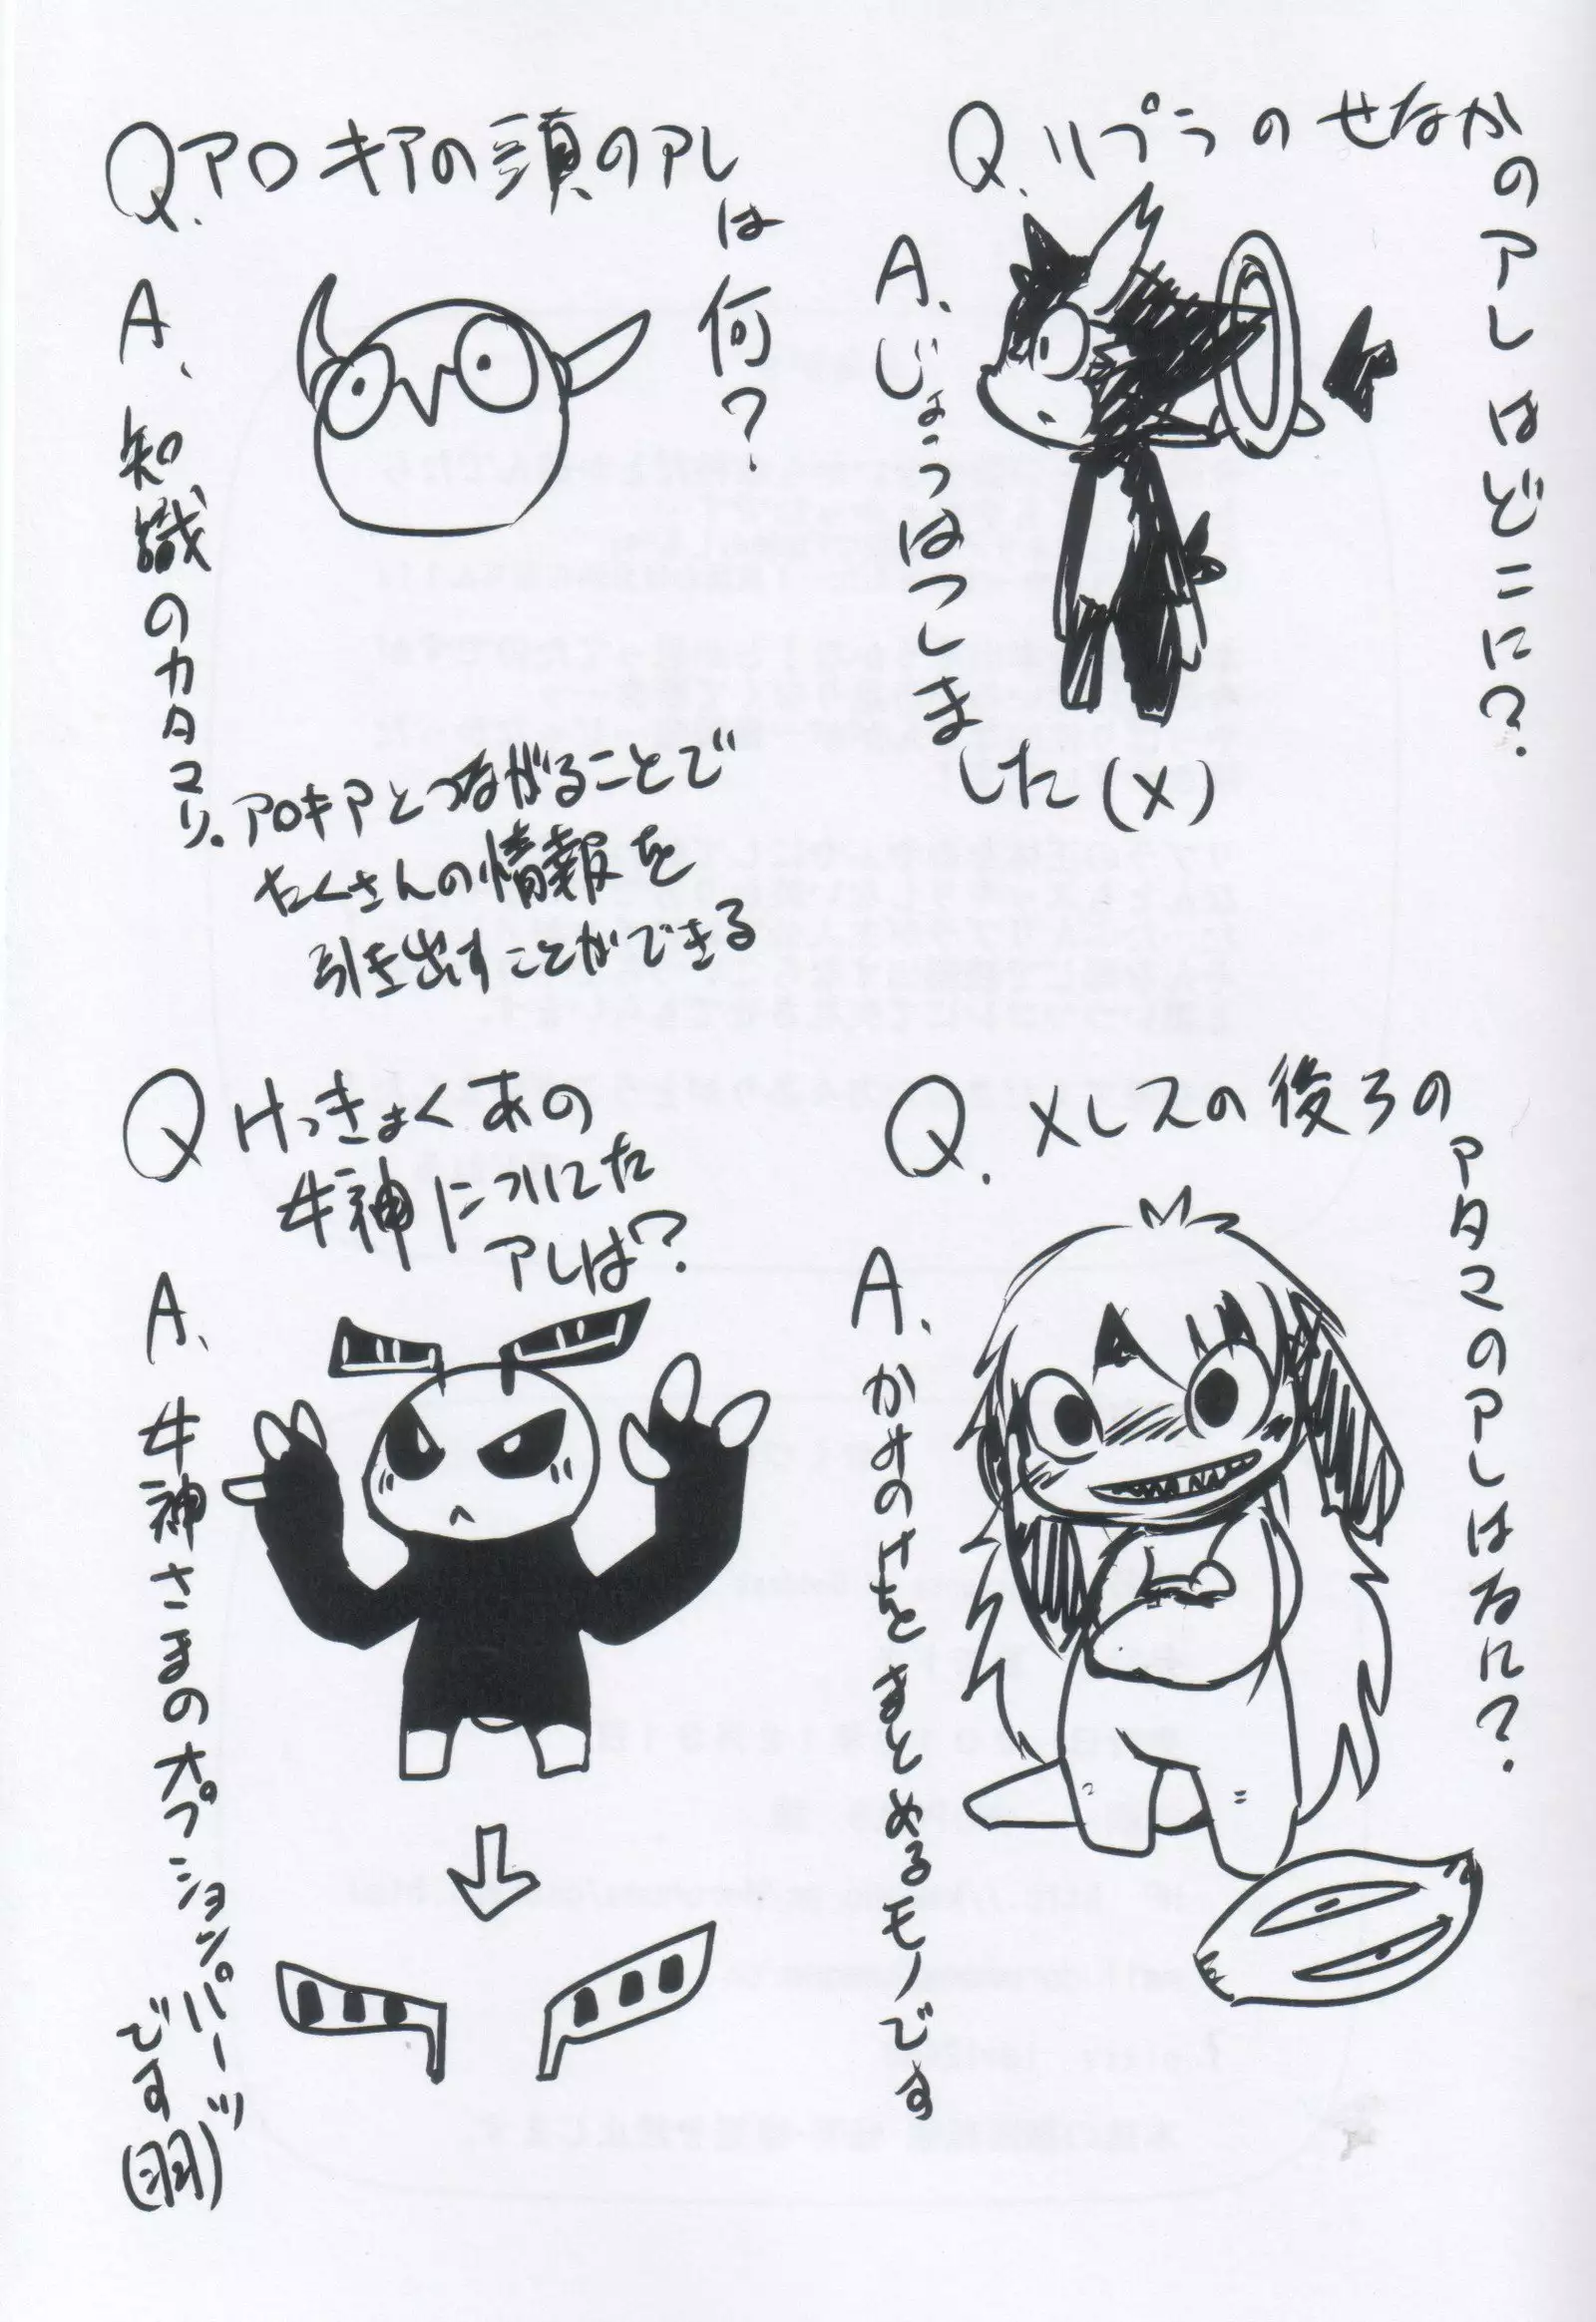 Q.リプラのせなか
のアレはどこに?
A.じょうはつしま
した(メ)
Q.アロキアの頭のアレ
は何?
A.知識のカタマリ。
アロキアとつながることで
たくさんの情報を
引き出すことができる
Q.メレスの後ろの
アタマのアレはなに?
A.かみのけをまとめるモノです
Qけっきょくあの
女神についてた
アレは?
A.女神さまのオプションパーツ
です(羽)